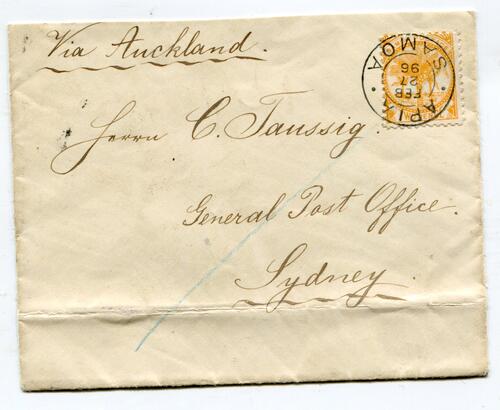 Via Auckland.
Herrn C. Taussig.
General Post Office.
Sydney.
APIA
FEB
27
96
SAMOA